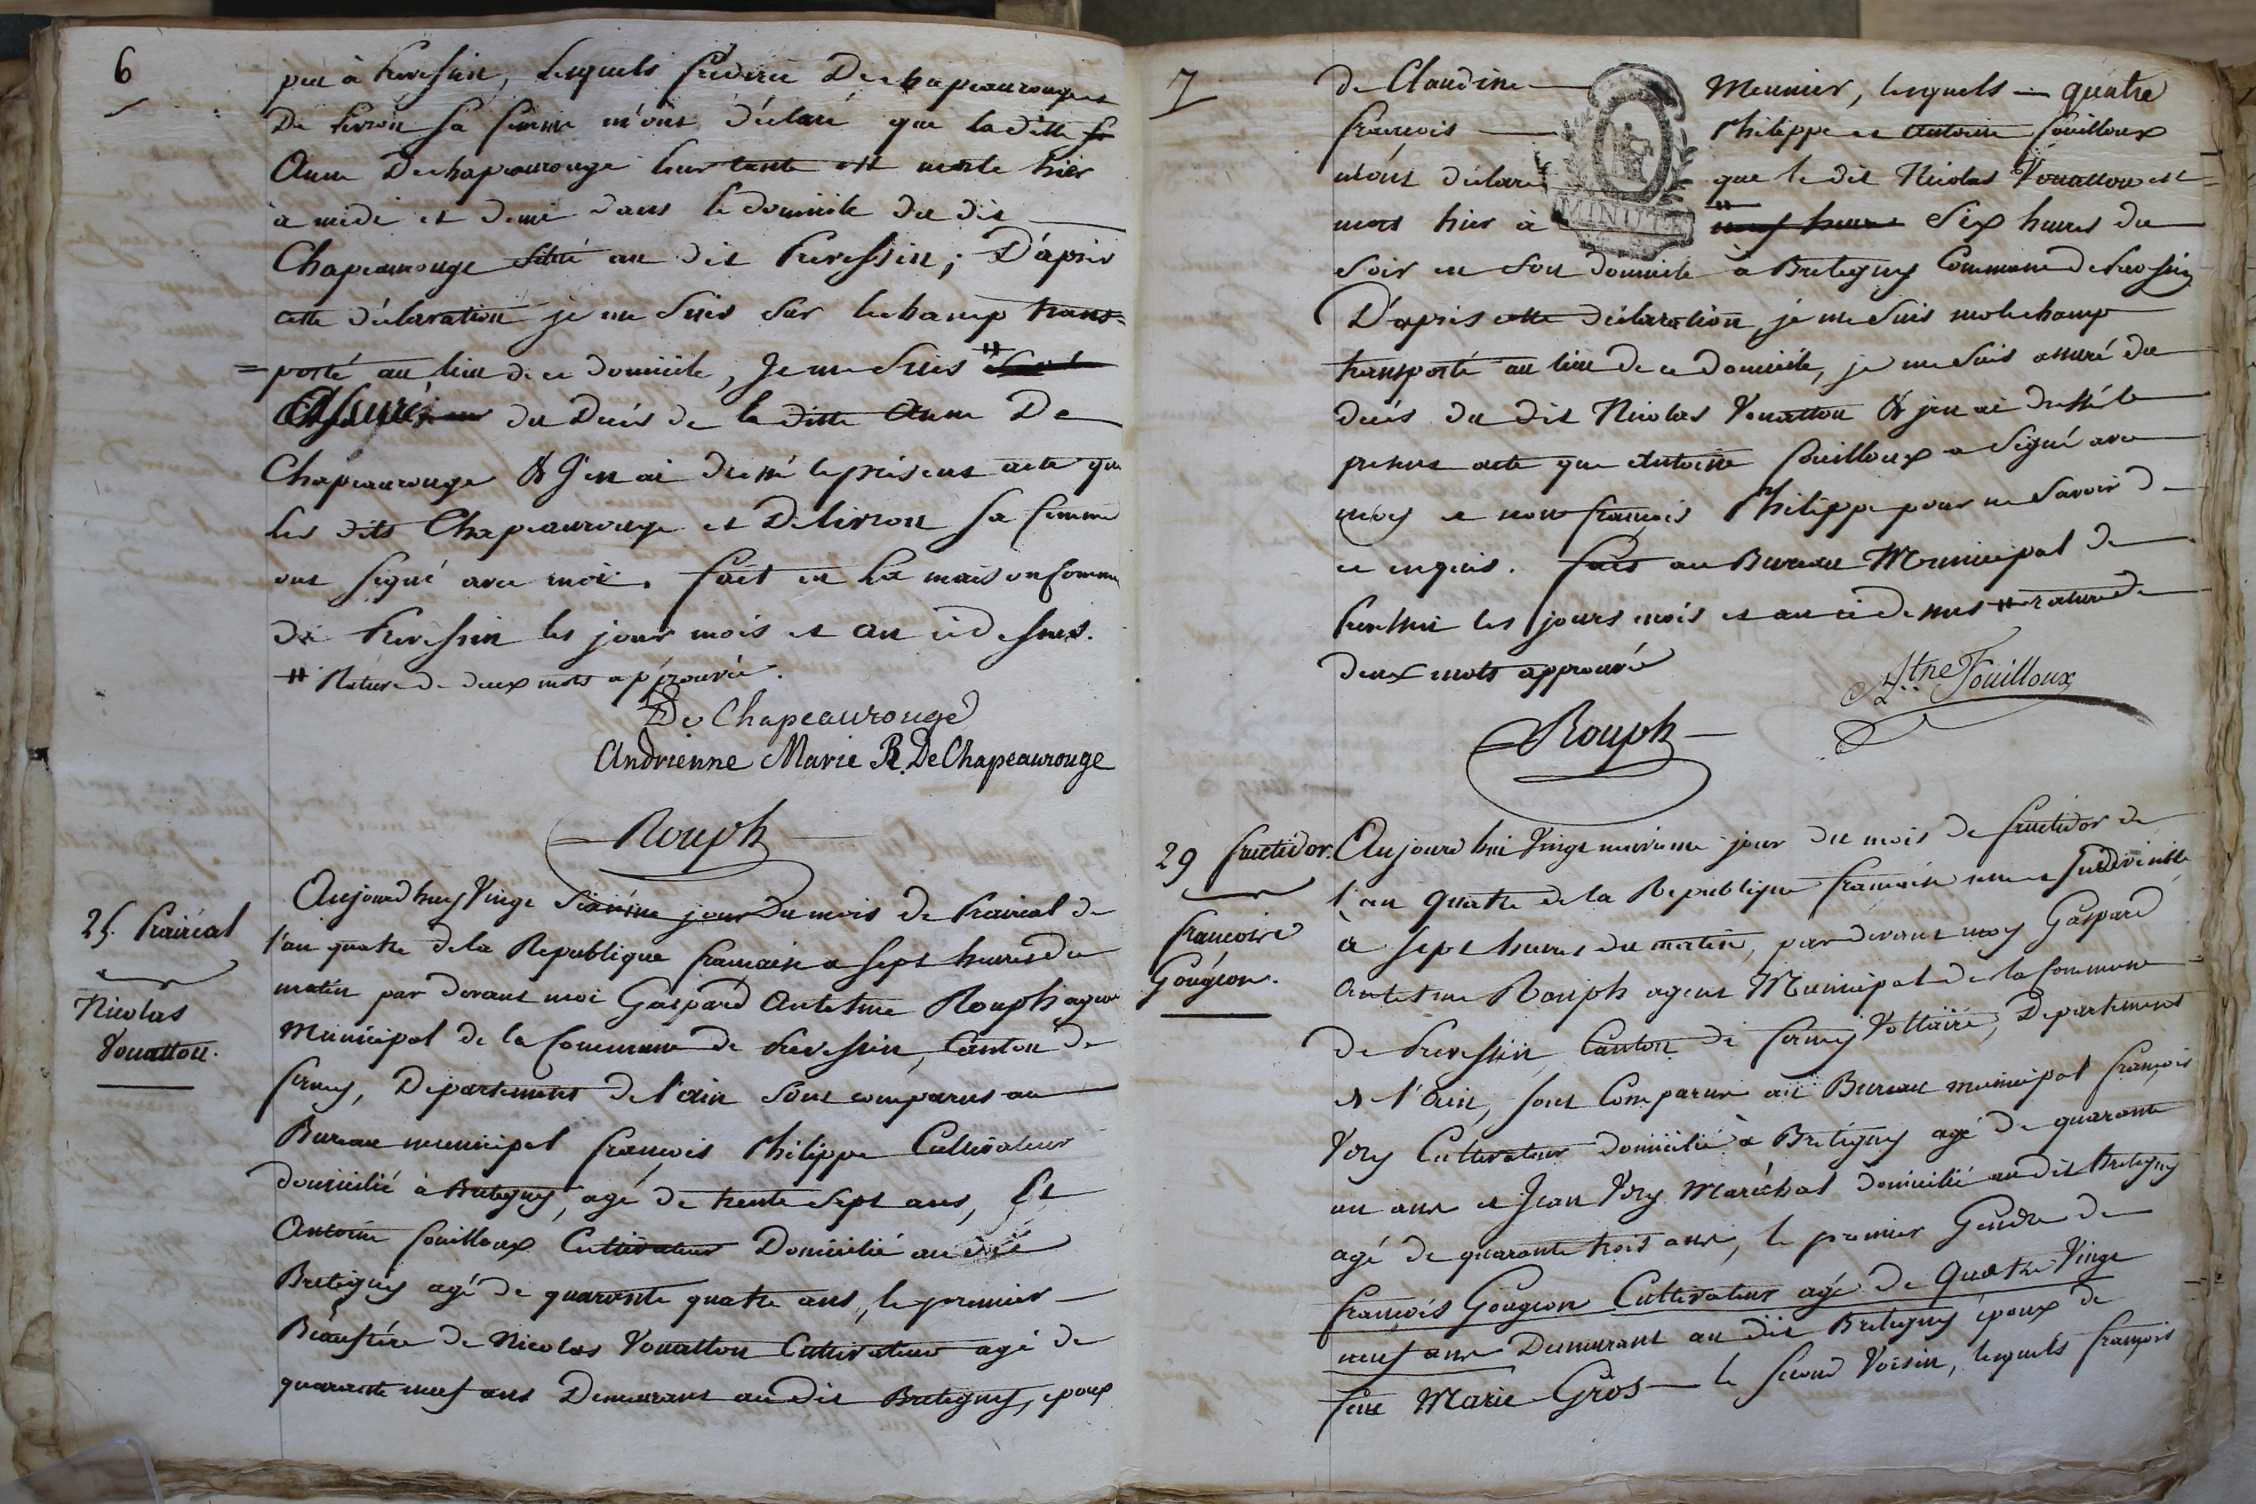 6
peu à Prevessin, lesquels frederic Dechapeaurouge et
De Livron sa femme m'ont déclaré que la ditte
Anne Dechapeaurouge leur tante est morte hier
à midi et demi dans le domicile du dit
Chapeaurouge situé au dit Prevessin; D'après
cette déclaration je me suis sur le champ trans=
=porté au lieu de ce domicile, Je me suis #
Assuré du Decès de la ditte Anne De
Chapeaurouge & J'en ai dressé le présent acte que
les dits Chapeaurouge et Delivron sa femme
ont signé avec moi. fait en la maison Commune
de Prevessin les jour mois et an ci dessus.
# Rature de deux mots approuvée.
De Chapeaurouge
Andrienne Marie R. De Chapeaurouge
Rouph
25. Prairéal
Nicolas
Vouattou.
Aujourdhuy Vingt Sixième jour Du mois de Prairéal de
l'an quatre de la Republique francaise a sept heures du
matin par devant moi Gaspard Antelme Rouph agent
Municipal de la Commune de Prevessin, Canton de
ferney, Departement de l'ain sont comparus au
Bureau municipal francois Philippe Cultivateur
domicilié à Bretigny, agé de trente sept ans, Et
Antoine fouilloux Cultivateur Domicilié au dit
Bretigny agé de quarante quatre ans, le premier
Béaufrére de Nicolas Vouattou Cultivateur agé de
quarante neuf ans Demeurant au dit Bretigny, epoux
7
de Claudine Meunier, lesquels quatre
francois Philippe et Antoine fouilloux
m'ont déclaré que le dit Nicolas Vouattou est
mort hier à # neuf heures Six heures du
soir en son domicile à Bretigny Commune de Prevessin
D'après cette déclaration, je me suis sur le champ
transporté au lieu de ce domicile, je me suis assuré du
decés du dit Nicolas Vouattou & j'en ai dressé le
present acte que Antoine fouilloux a signé avec
moy et non françois Philippe pour ne savoir de
ce enquis. fait au Bureau Municipal de
Prevessin les jours mois et an ci dessus # rature de
deux mots approuvée
Atne Fouilloux
Rouph
29 fructidor.
francoise
Gougeon.
Aujourdhui Vingt neuvieme jour du mois de fructidor de
l'an Quatre de la Republique francaise une et Indivisible
à sept heures du matin, par devant moy Gaspard
Antelme Rouph agent Municipal de la Commune
de Prevessin Canton de ferney Voltaire, Departement
de l'Ain, sont Comparus au Bureau municipal françois
Véry Cultivateur domicilié à Bretigny agé de quarante
un ans et Jean Véry Maréchal domicilié au dit Bretigny
agé de quarante trois ans, le premier Gendre de
françois Gougeon Cultivateur agé de Quatre Vingt
neuf ans Demeurant au dit Bretigny époux de
feue Marie Gros le second Voisin, lesquels françois
MINUTE